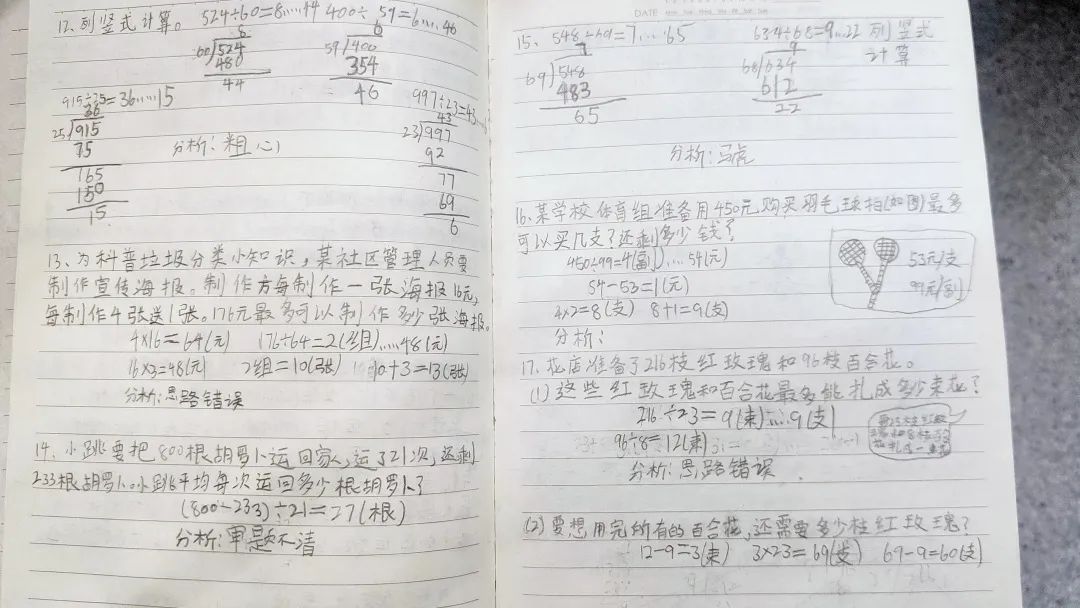 12、列竖式计算。 524÷60=8……44 400÷59=6……46
8
60 524
480
44
6
59 400
354
46
915÷25=36……15
36
25 915
75
165
150
15
997÷23=43……
43
23 997
92
77
69
6
分析：粗心
13、为科普垃圾分类小知识，某社区管理人员要
制作宣传海报。制作方每制作一张海报16元，
每制作4张送1张。176元最多可以制作多少张海报。
4×16=64(元) 176÷64=2(组)……48(元)
16×3=48(元) 2组=10(张) 10+3=13(张)
分析：思路错误
14、小跳要把800根胡萝卜运回家，运了21次，还剩
233根胡萝卜。小跳平均每次运回多少根胡萝卜？
(800-233)÷21=27(根)
分析：审题不清
DATE
15、548÷69=7……65 634÷68=9……22 列竖式
计算
7
69 548
483
65
9
68 634
612
22
分析：马虎
16、某学校体育组准备用450元购买羽毛球拍(如图)最多
可以买几支？还剩多少钱？
450÷99=4(副)……54(元)
54-53=1(元)
4×2=8(支) 8+1=9(支)
53元/支
99元/副
分析：
17、花店准备了216枝红玫瑰和96枝百合花。
(1)这些红玫瑰和百合花最多能扎成多少束花？
216÷23=9(束)……9(支)
96÷8=12(束)
分析：思路错误
(2)要想用完所有的百合花，还需要多少枝红玫瑰？
12-9=3(束) 3×23=69(支) 69-9=60(支)